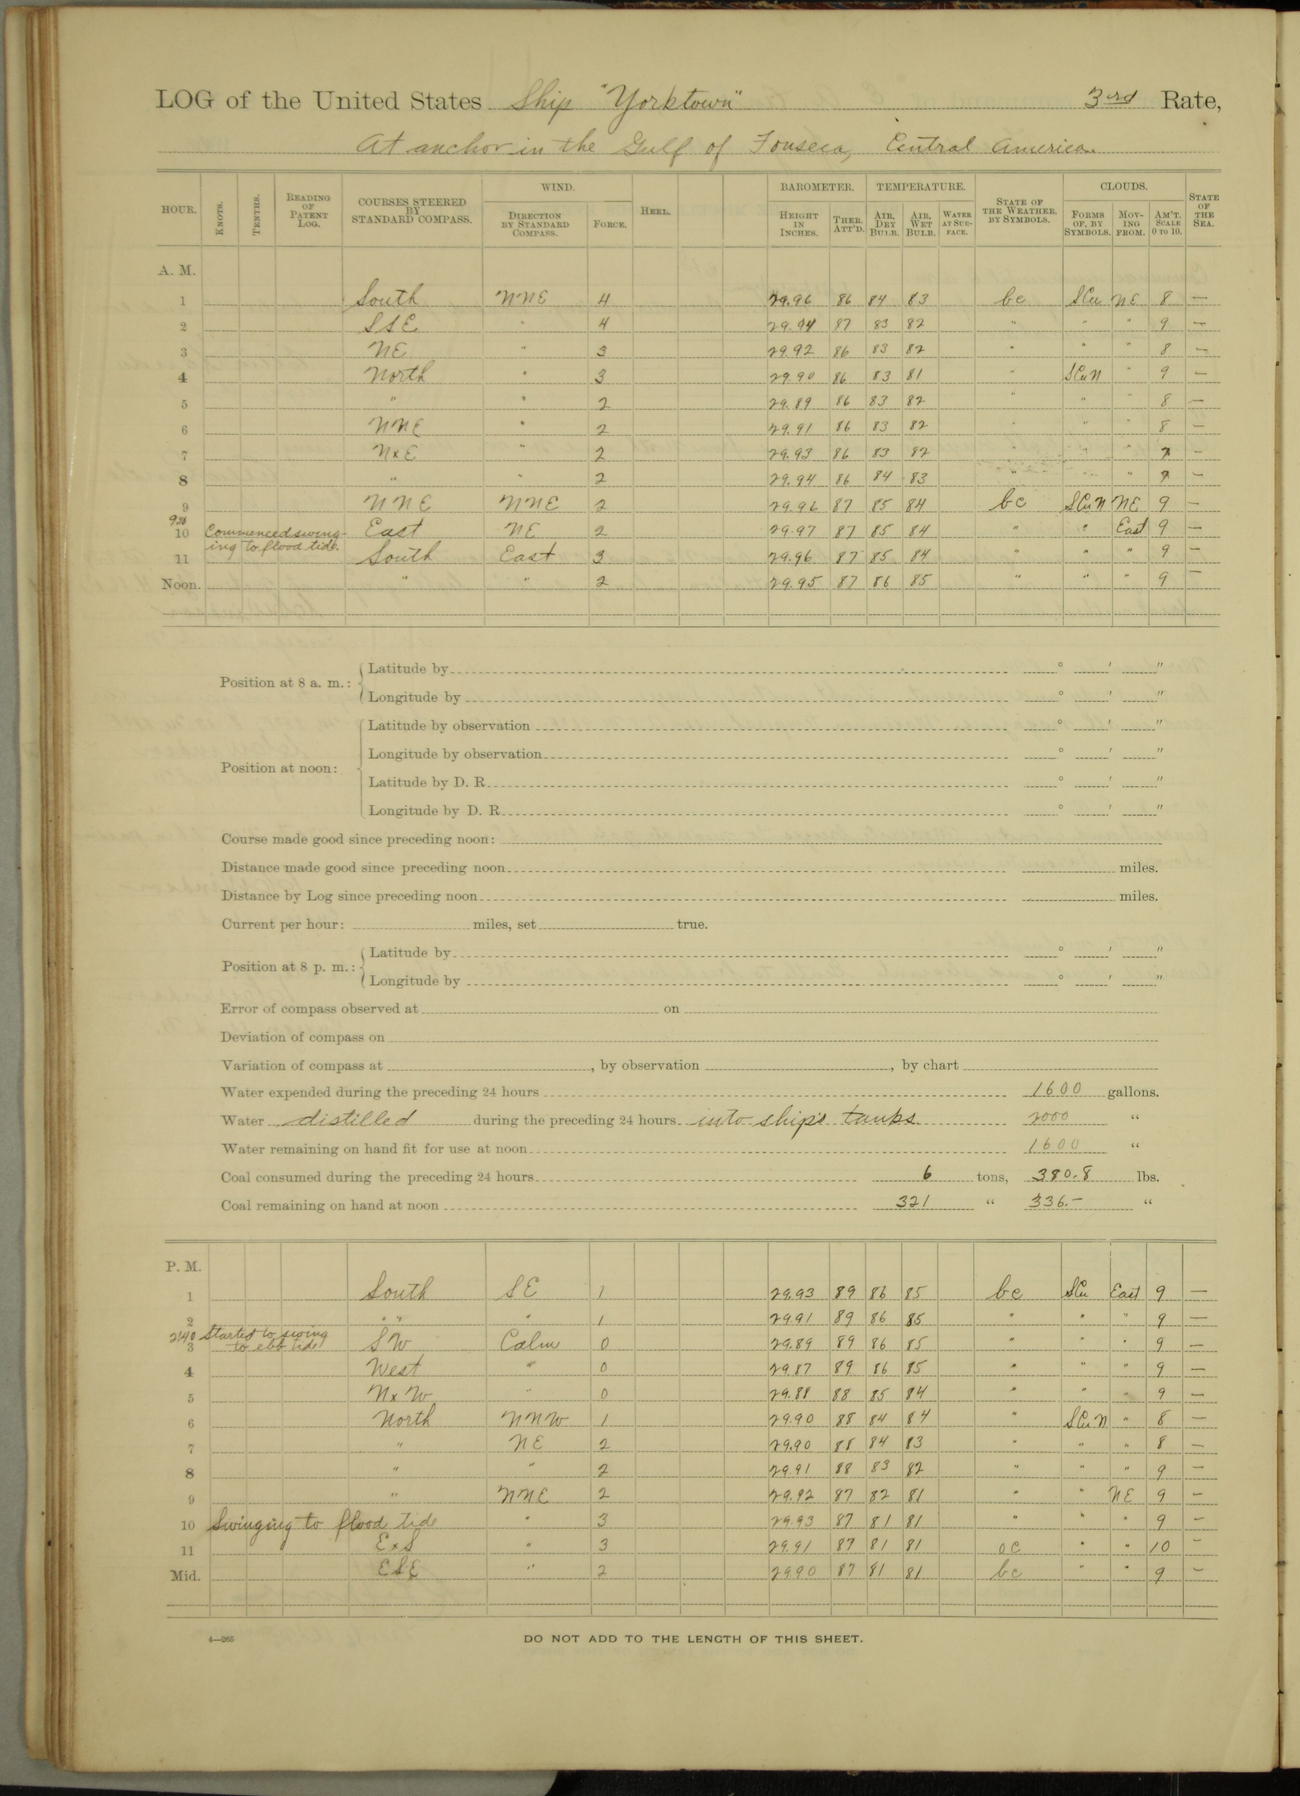 LOG of the United States Ship "Yorktown" 3rd Rate,
At anchor in the Gulf of Fonseca, Central America.
HOUR. KNOTS. TENTHS. READING OF PATENT LOG. COURSES STEERED BY STANDARD COMPASS. WIND. DIRECTION BY STANDARD COMPASS. FORCE. HEEL. BAROMETER. HEIGHT IN INCHES. THER. ATT'D. TEMPERATURE. AIR, DRY BULB. AIR, WET BULB. WATER AT SURFACE. STATE OF THE WEATHER, BY SYMBOLS. CLOUDS. FORMS OF, BY SYMBOLS. MOVING FROM. AM'T. SCALE 0 TO 10. STATE OF THE SEA.
A. M.
1 South NNE 4 29.96 86 84 83 bc SCu NE 8 —
2 SSE " 4 29.94 87 83 82 " " " 9 —
3 NE " 3 29.92 86 83 82 " " " 8 —
4 North " 3 29.90 86 83 81 " SCuN " 9 —
5 " " 2 29.89 86 83 82 " " " 8 —
6 NNE " 2 29.91 86 83 82 " " " 8 —
7 NxE " 2 29.93 86 83 82 " " " —
8 " " 2 29.94 86 84 83 " " " —
9 NNE NNE 2 29.96 87 85 84 bc SCuN NE 9 —
10 Commenced swing- East NE 2 29.97 87 85 84 " " East 9 —
ing to flood tide.
11 South East 3 29.96 87 85 84 " " " 9 —
Noon. " " 2 29.95 87 86 85 " " " 9 —
Position at 8 a. m.: Latitude by ° ' "
Longitude by ° ' "
Position at noon: Latitude by observation ° ' "
Longitude by observation ° ' "
Latitude by D. R. ° ' "
Longitude by D. R. ° ' "
Course made good since preceding noon:
Distance made good since preceding noon miles.
Distance by Log since preceding noon miles.
Current per hour: miles, set true.
Position at 8 p. m.: Latitude by ° ' "
Longitude by ° ' "
Error of compass observed at on
Deviation of compass on
Variation of compass at , by observation , by chart
Water expended during the preceding 24 hours 1600 gallons.
Water distilled during the preceding 24 hours into ship's tanks 2000 "
Water remaining on hand fit for use at noon 1600 "
Coal consumed during the preceding 24 hours 6 tons, 380.8 lbs.
Coal remaining on hand at noon 321 " 336.— "
P. M.
1 South SE 1 29.93 89 86 85 bc SCu East 9 —
2 " " " 1 29.91 89 86 85 " " " 9 —
2:40 Started to swing
3 to ebb tide SW Calm 0 29.89 89 86 85 " " " 9 —
4 West " 0 29.87 89 86 85 " " " 9 —
5 NxW " 0 29.88 88 85 84 " " " 9 —
6 North NNW 1 29.90 88 84 84 " SCuN " 8 —
7 " NE 2 29.90 88 84 83 " " " 8 —
8 " " 2 29.91 88 83 82 " " " 9 —
9 " NNE 2 29.92 87 82 81 " " NE 9 —
10 Swinging to flood tide " 3 29.93 87 81 81 " " " 9 —
11 ExS " 3 29.91 87 81 81 oc " " 10 —
Mid. ESE " 2 29.90 87 81 81 bc " " 9 —
4—265 DO NOT ADD TO THE LENGTH OF THIS SHEET.